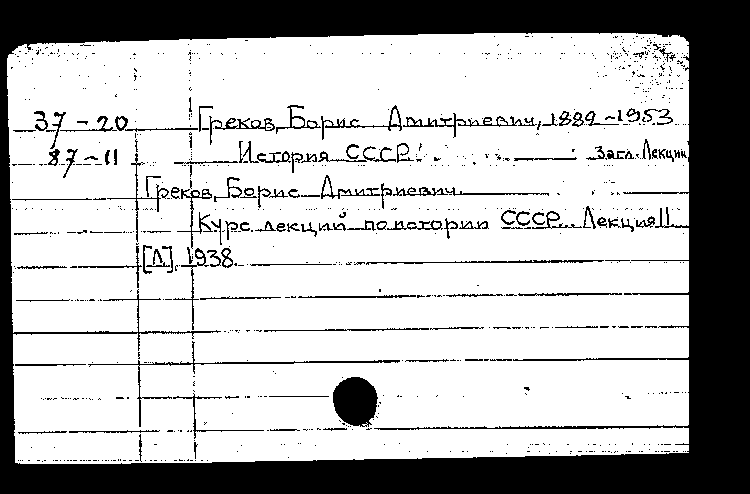 37-20 Греков, Борис Дмитриевич, 1882-1953
87-11 История СССР. Загл. Лекции
Греков, Борис Дмитриевич.
Курс лекций по истории СССР... Лекция II.
[Л], 1938.